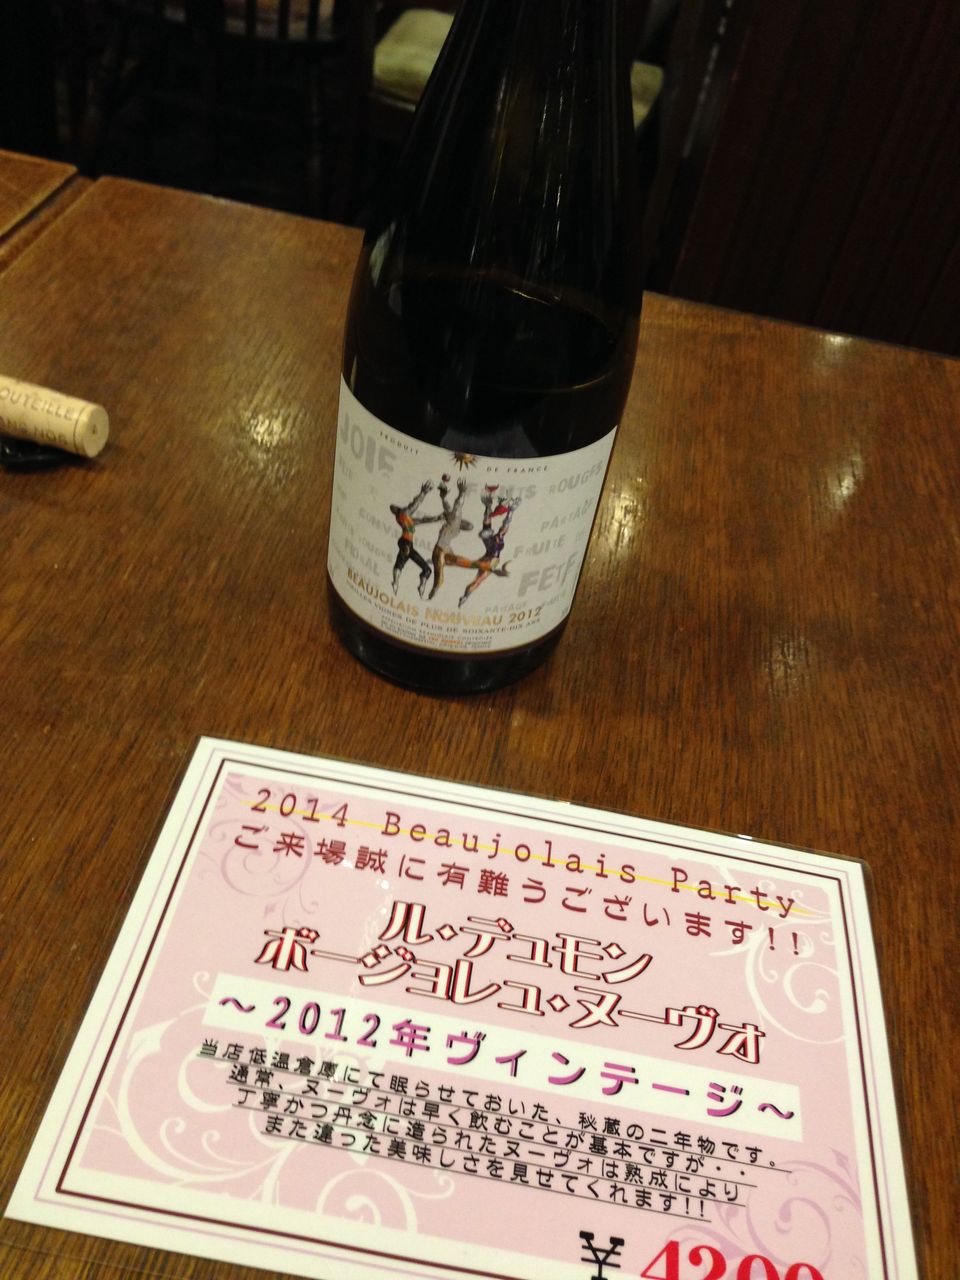 OUTEILLE
JOIE
PRODUIT DE FRANCE
FRUITS ROUGES
FÊTE
CONVIVIAL
PARTAGE
FRUITÉ
ROUGES
FÊTE
PARTAGE
BEAUJOLAIS NOUVEAU 2012
VIEILLES VIGNES DE PLUS DE SOIXANTE-DIX ANS
2014 Beaujolais Party
ご来場誠に有難うございます!!
ル・デュモン
ボージョレュ・ヌーヴォ
～2012年ヴィンテージ～
当店低温倉庫にて眠らせておいた、秘蔵の二年物です。
通常、ヌーヴォは早く飲むことが基本ですが・・
丁寧かつ丹念に造られたヌーヴォは熟成により
また違った美味しさを見せてくれます!!
¥4200